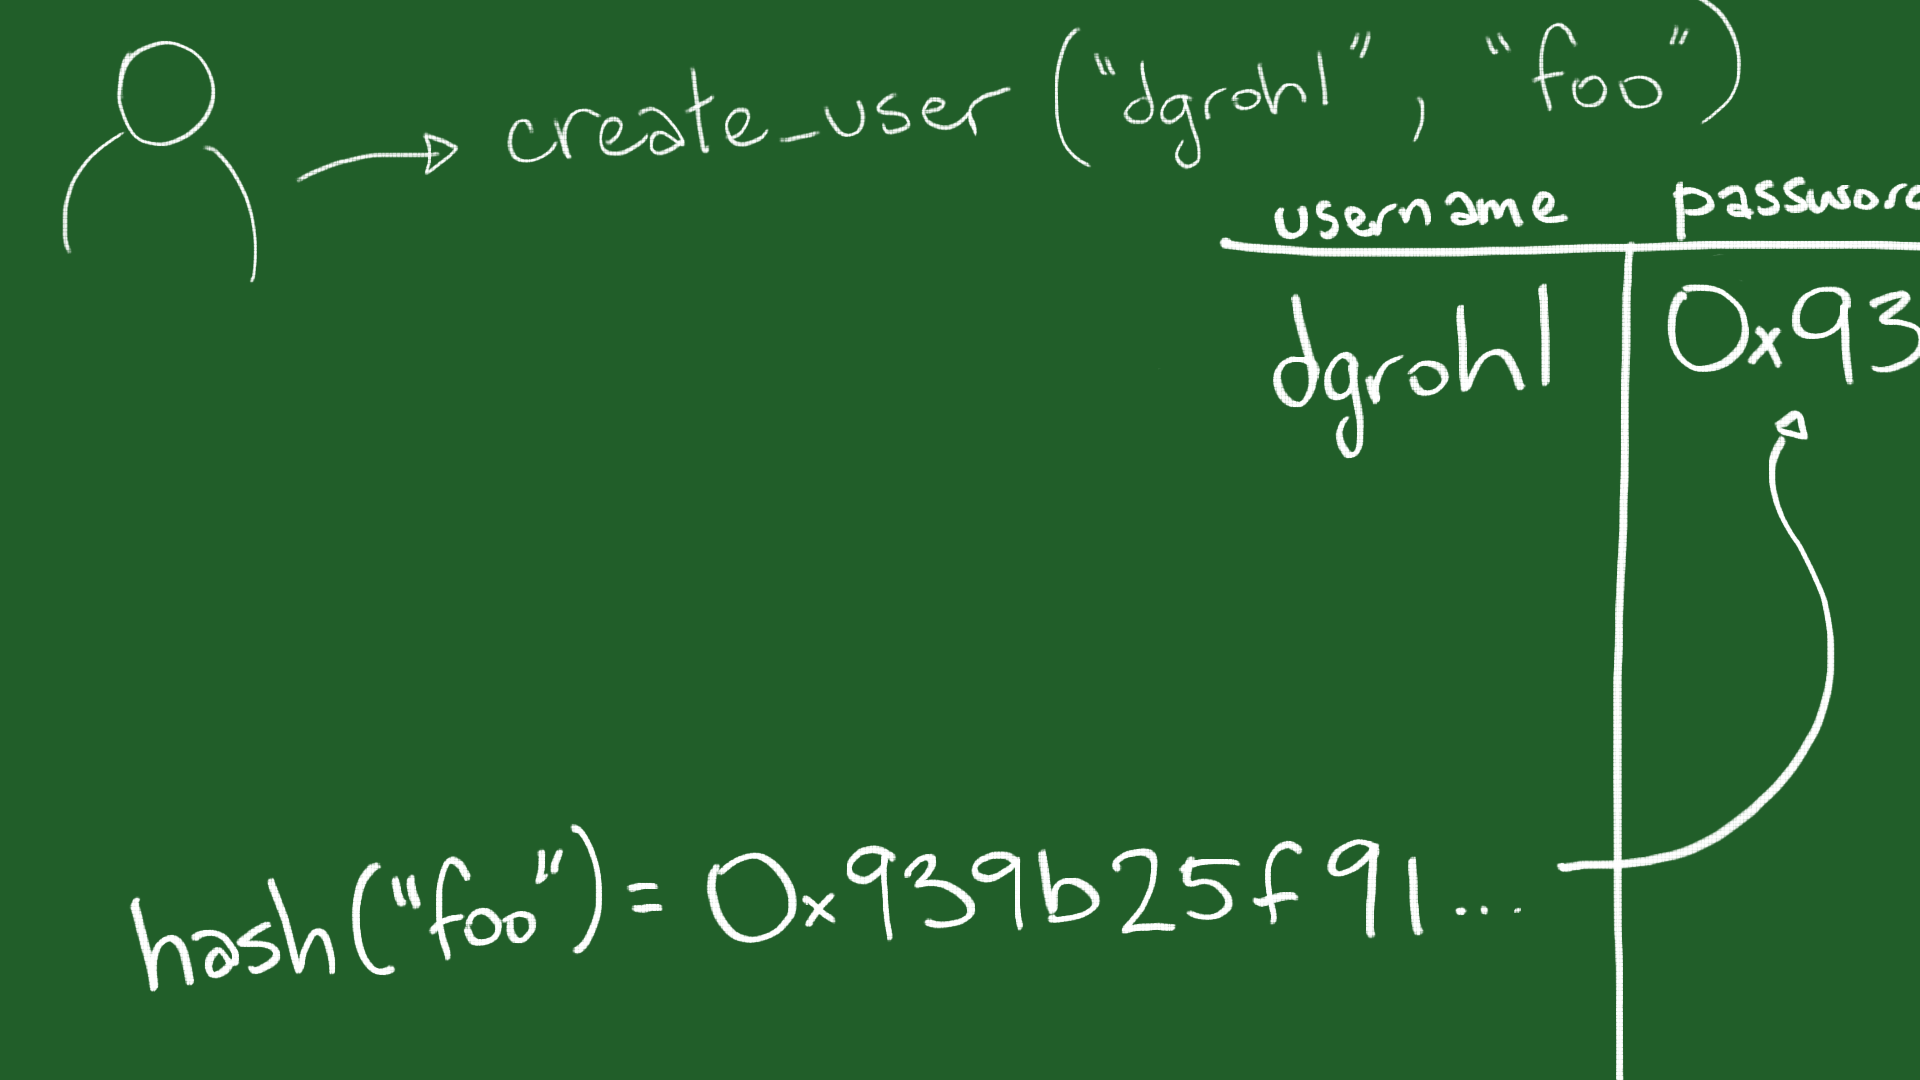 create_user ("dgrohl", "foo")
username passwor
dgrohl 0x93
hash("foo") = 0x939b25f91...